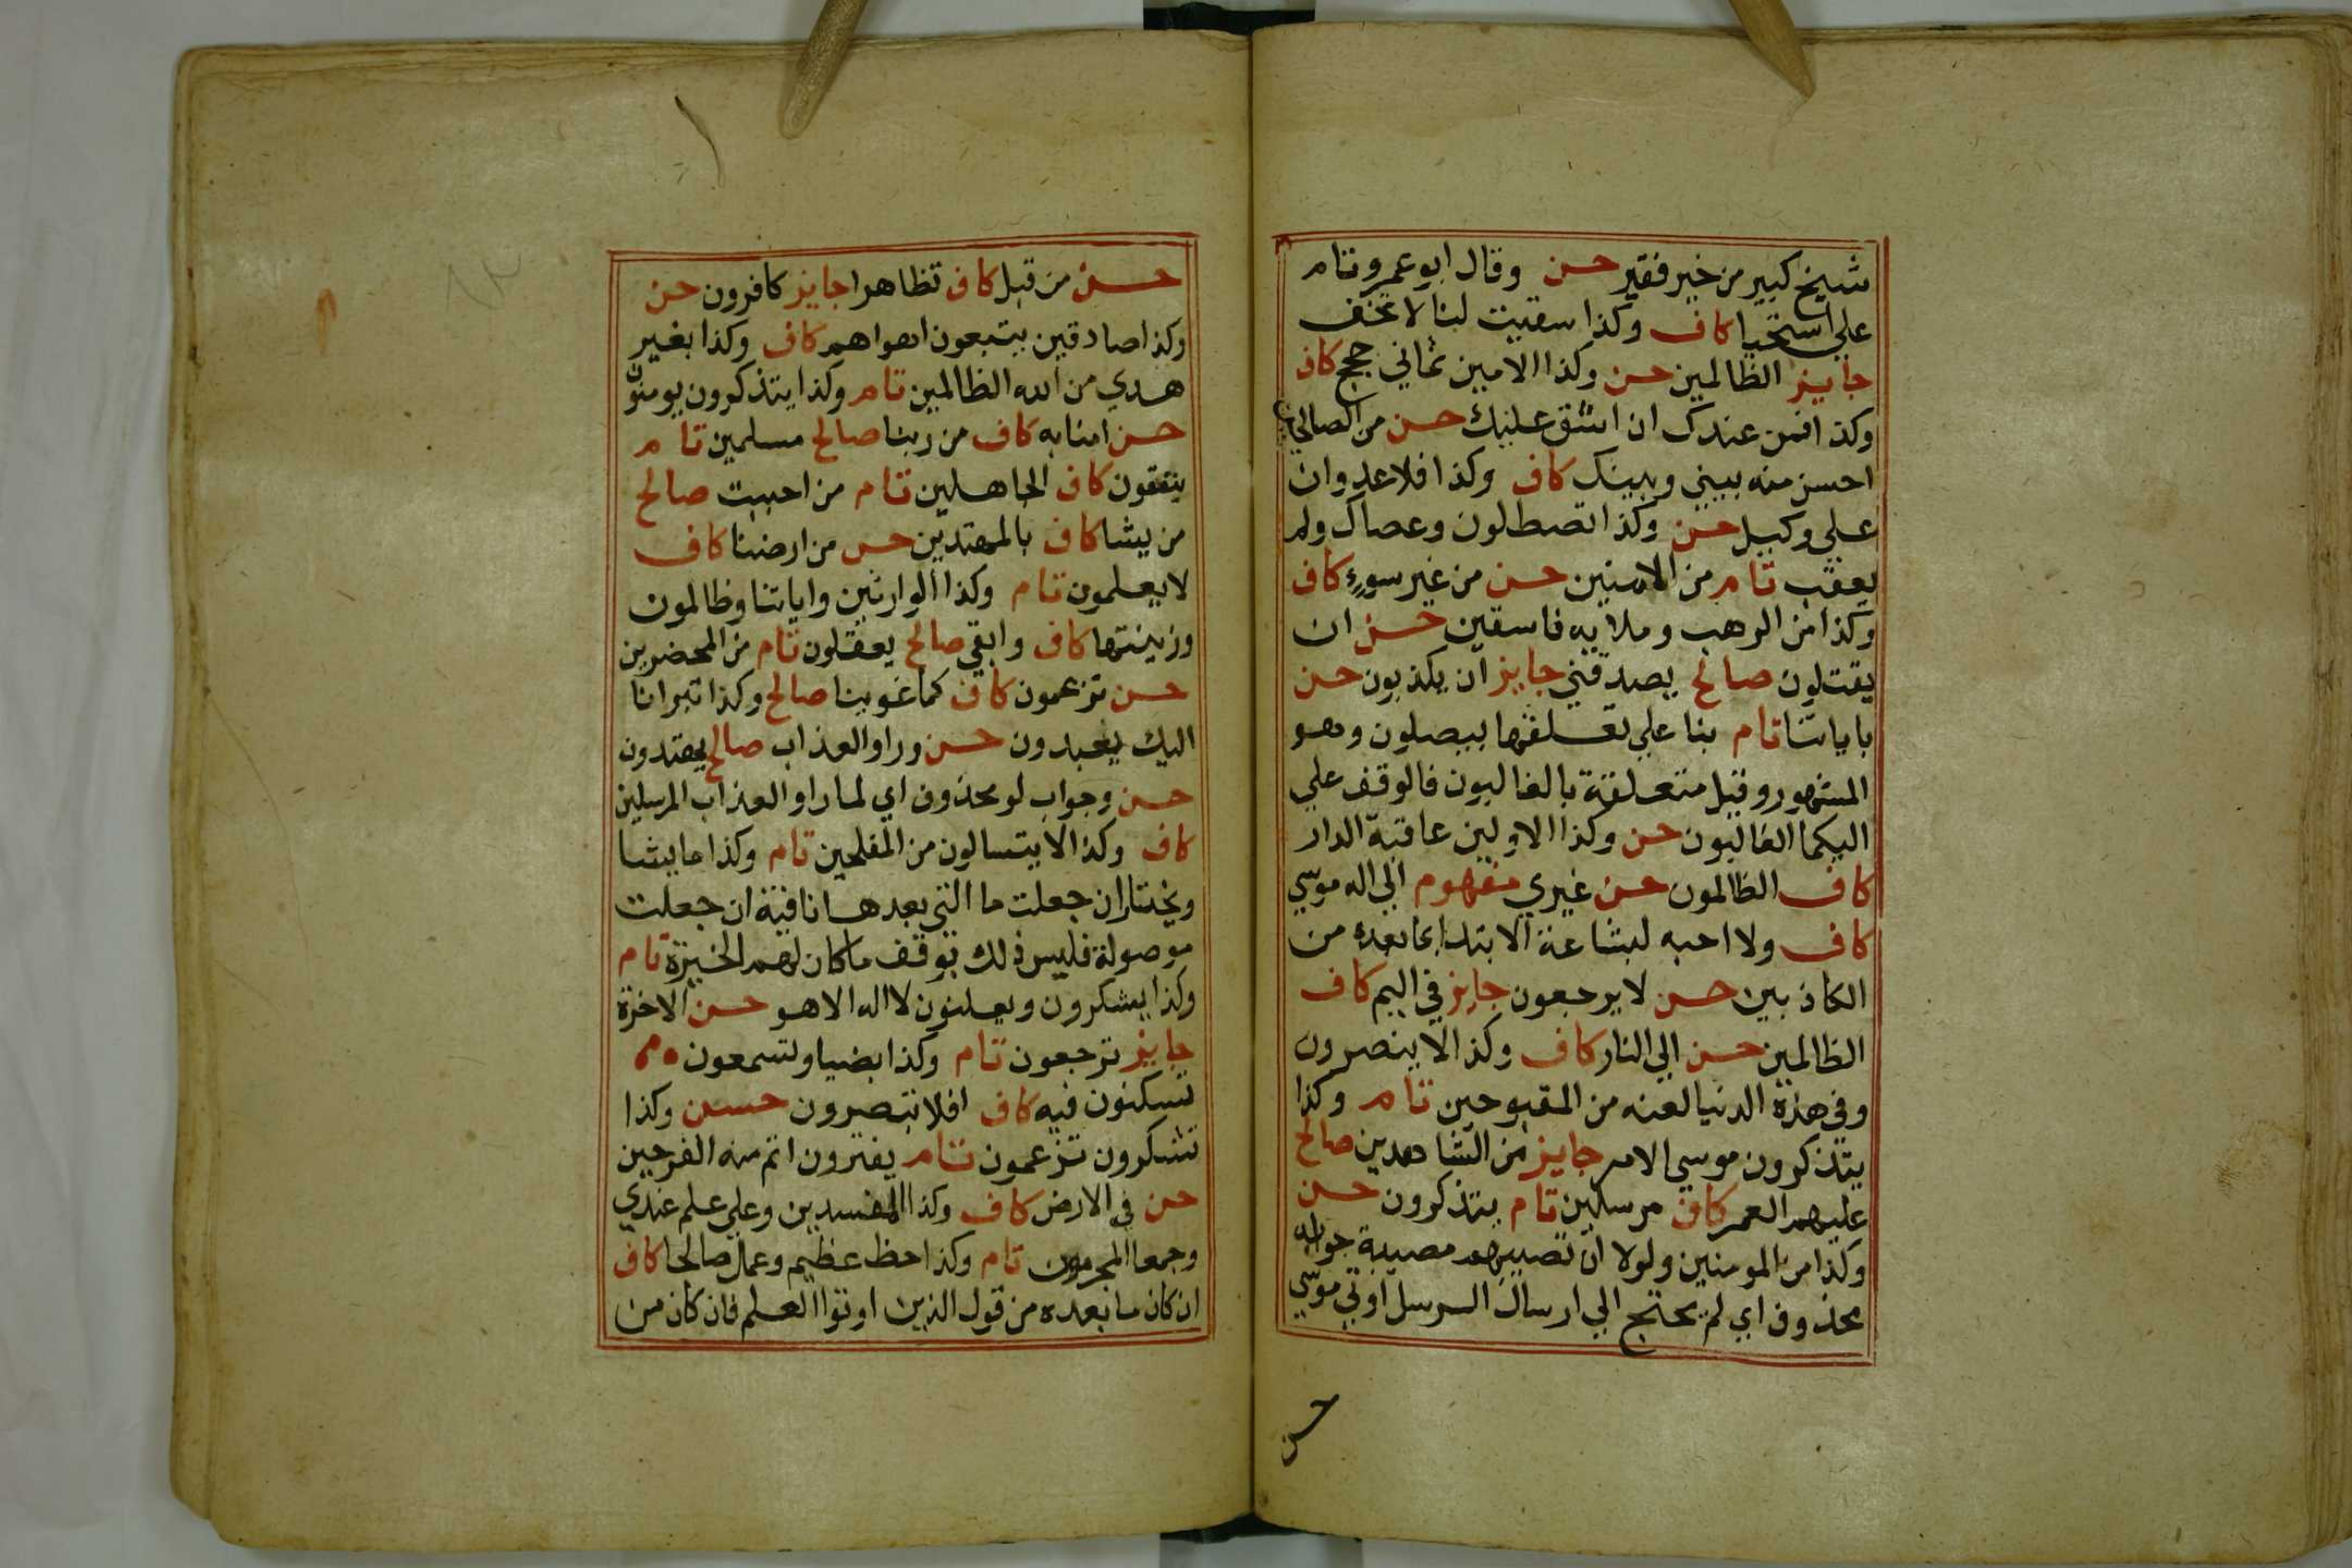 شيخ كبير من خير فقير حسن وقال ابو عمرو تام
علي استحيا كاف وكذا سقيت لنا لا تخف
جايز الظالمين حسن وكذا الامين ثماني حجج كاف
وكذا فمن عندك ان اشق عليك حسن من الصالحين
احسن منه بيني وبينك كاف وكذا فلا عدوان
علي وكيل حسن وكذا تصطلون وعصاك ولم
يعقب تام من الامنين حسن من غير سوء كاف
وكذا من الرهب وملايه فاسقين حسن ان
يقتلون صالح يصدقني جايز ان يكذبون حسن
باياتنا تام بنا علي تعلقها بيصلون وهو
المشهور وقيل متعلقة بالغالبون فالوقف علي
اليكما الغالبون حسن وكذا الاولين عاقبة الدار
كاف الظالمون حسن غيري مفهوم الي اله موسي
كاف ولا احبه لبشاعة الابتدا بما بعده من
الكاذبين حسن لا يرجعون جايز في اليم كاف
الظالمين حسن الي النار كاف وكذا لا ينصرون
وفي هذه الدنيا لعنه من المقبوحين تام وكذا
يتذكرون موسي الامر جايز من الشاهدين صالح
عليهم العمر كاف مرسلين تام يتذكرون حسن
وكذا من المومنين ولولا ان تصيبهم مصيبة جوابه
محذوف اي لم يحتج الي ارسال الرسل اوتي موسي
حسن
حسن من قبل كاف تظاهرا جايز كافرون حسن
وكذا صادقين يتبعون اهواهم كاف وكذا بغير
هدي من الله الظالمين تام وكذا يتذكرون يومنون
حسن امنا به كاف من ربنا صالح مسلمين تام
ينفقون كاف الجاهلين تام من احببت صالح
من يشا كاف بالمهتدين حسن من ارضنا كاف
لا يعلمون تام وكذا الوارثين واياتنا وظالمون
وزينتها كاف وابقي صالح يعقلون تام من المحضرين
حسن تزعمون كاف كما غوينا صالح وكذا تبرانا
اليك يعبدون حسن وراوا العذاب صالح يهتدون
حسن وجواب لو محذوف اي لما راوا العذاب المرسلين
كاف وكذا لا يتسالون من المفلحين تام وكذا ما يشا
ويختار ان جعلت ما التي بعدها نافية ان جعلت
موصولة فليس ذلك بوقف ما كان لهم الخيرة تام
وكذا يشكرون ويعلنون لا اله الا هو حسن الاخرة
جايز ترجعون تام وكذا بضيا وتسمعون
تسكنون فيه كاف افلا تبصرون حسن وكذا
تشكرون تزعمون تام يفترون اتم منه الفرحين
حسن في الارض كاف وكذا المفسدين وعلي علم عندي
وجمعا المجرمون تام وكذا حظ عظيم وعمل صالحا كاف
ان كان ما بعده من قول الذين اوتوا العلم فان كان من